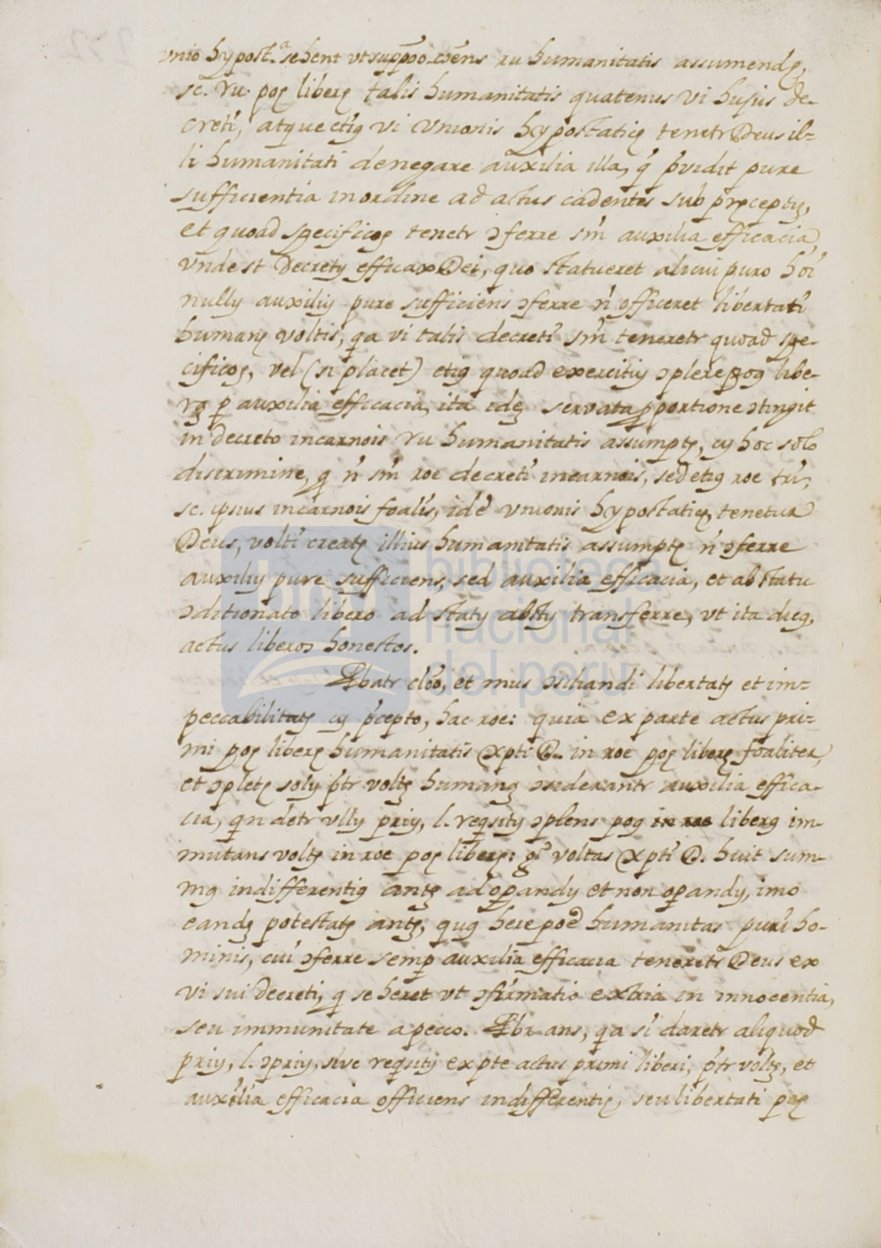 vnio hypost.a se hent vt suppo.o _ens ru humanitatis assumendę,
sc. ru poę liberę talis humanitatis quatenus vi hujus de-
creti, atque etię vi vnionis hypostatię tenetr Deus il-
li humanitati denegare auxilia illa, q̄ p̄vidit pure
sufficientia in ordine ad actus cadentes sub pręceptę,
et quoad specificoę tenetr ɔferre sm̄ auxilia efficacia,
vnde st Decretę efficax Dei, quo statueret alicui puro hōi
nullę auxilię pure sufficiens ɔferre n̄ officeret libertati
humanę voltis, qa vi talis decreti sm̄ teneretr quoad spe-
cificoę, vel (si placet) etię quoad exercitię ɔplere poę libe-
rę p auxilia efficacia, ita idę servata pportione ɔtingit
in decreto incarnois ru humanitatis assumptę, cę hoc solo
discrimine, q n̄ sm̄ roe decreti incarnois, sed etię roe tr̄i,
sc. ipsius incarnois foalis, idē vnionis hypostatię, tenetur
Deus, volti creatę illius humanitatis assumptę n̄ ɔferre
auxilię pure sufficiens, sed auxilia efficacia, et ab statu
ɔditionato libero ad statę absltę transferre, vt ita dicę,
actus liberos honestos.
Pbatr clōo, et mus ɔsiliandi libertatę et im-
peccabilitatę cę p̄cepto, hac roe: quia ex parte actus pri-
mi poę liberę humanitatis Xpti D. in roe poę liberę foaliter,
et ɔpletę solę p̄tr voltę humanę ɔsiderantr auxilia effica-
cia, qn detr vllę prię, l. reqsitę ɔplens poę in roe liberę im-
mutans voltę in roe poę liberę: g° voltas Xpti D. huit sum-
mę indifferentię antę ad opandę et non opandę, imo
eandę potestatę antę, quę here poēd humanitas puri ho-
minis, cui ɔferre semp auxilia efficacia teneretr Deus ex
vi sui decreti, q se heret vt ɔfirmatio extria in innocentia,
seu immunitate a pecco. Pbr ans, qa si daretr aliquod
prię, l. ɔprię, sive reqsitę ex pte actus primi liberi, p̄tr voltę, et
auxilia efficacia officiens indifferentię, seu libertati poę